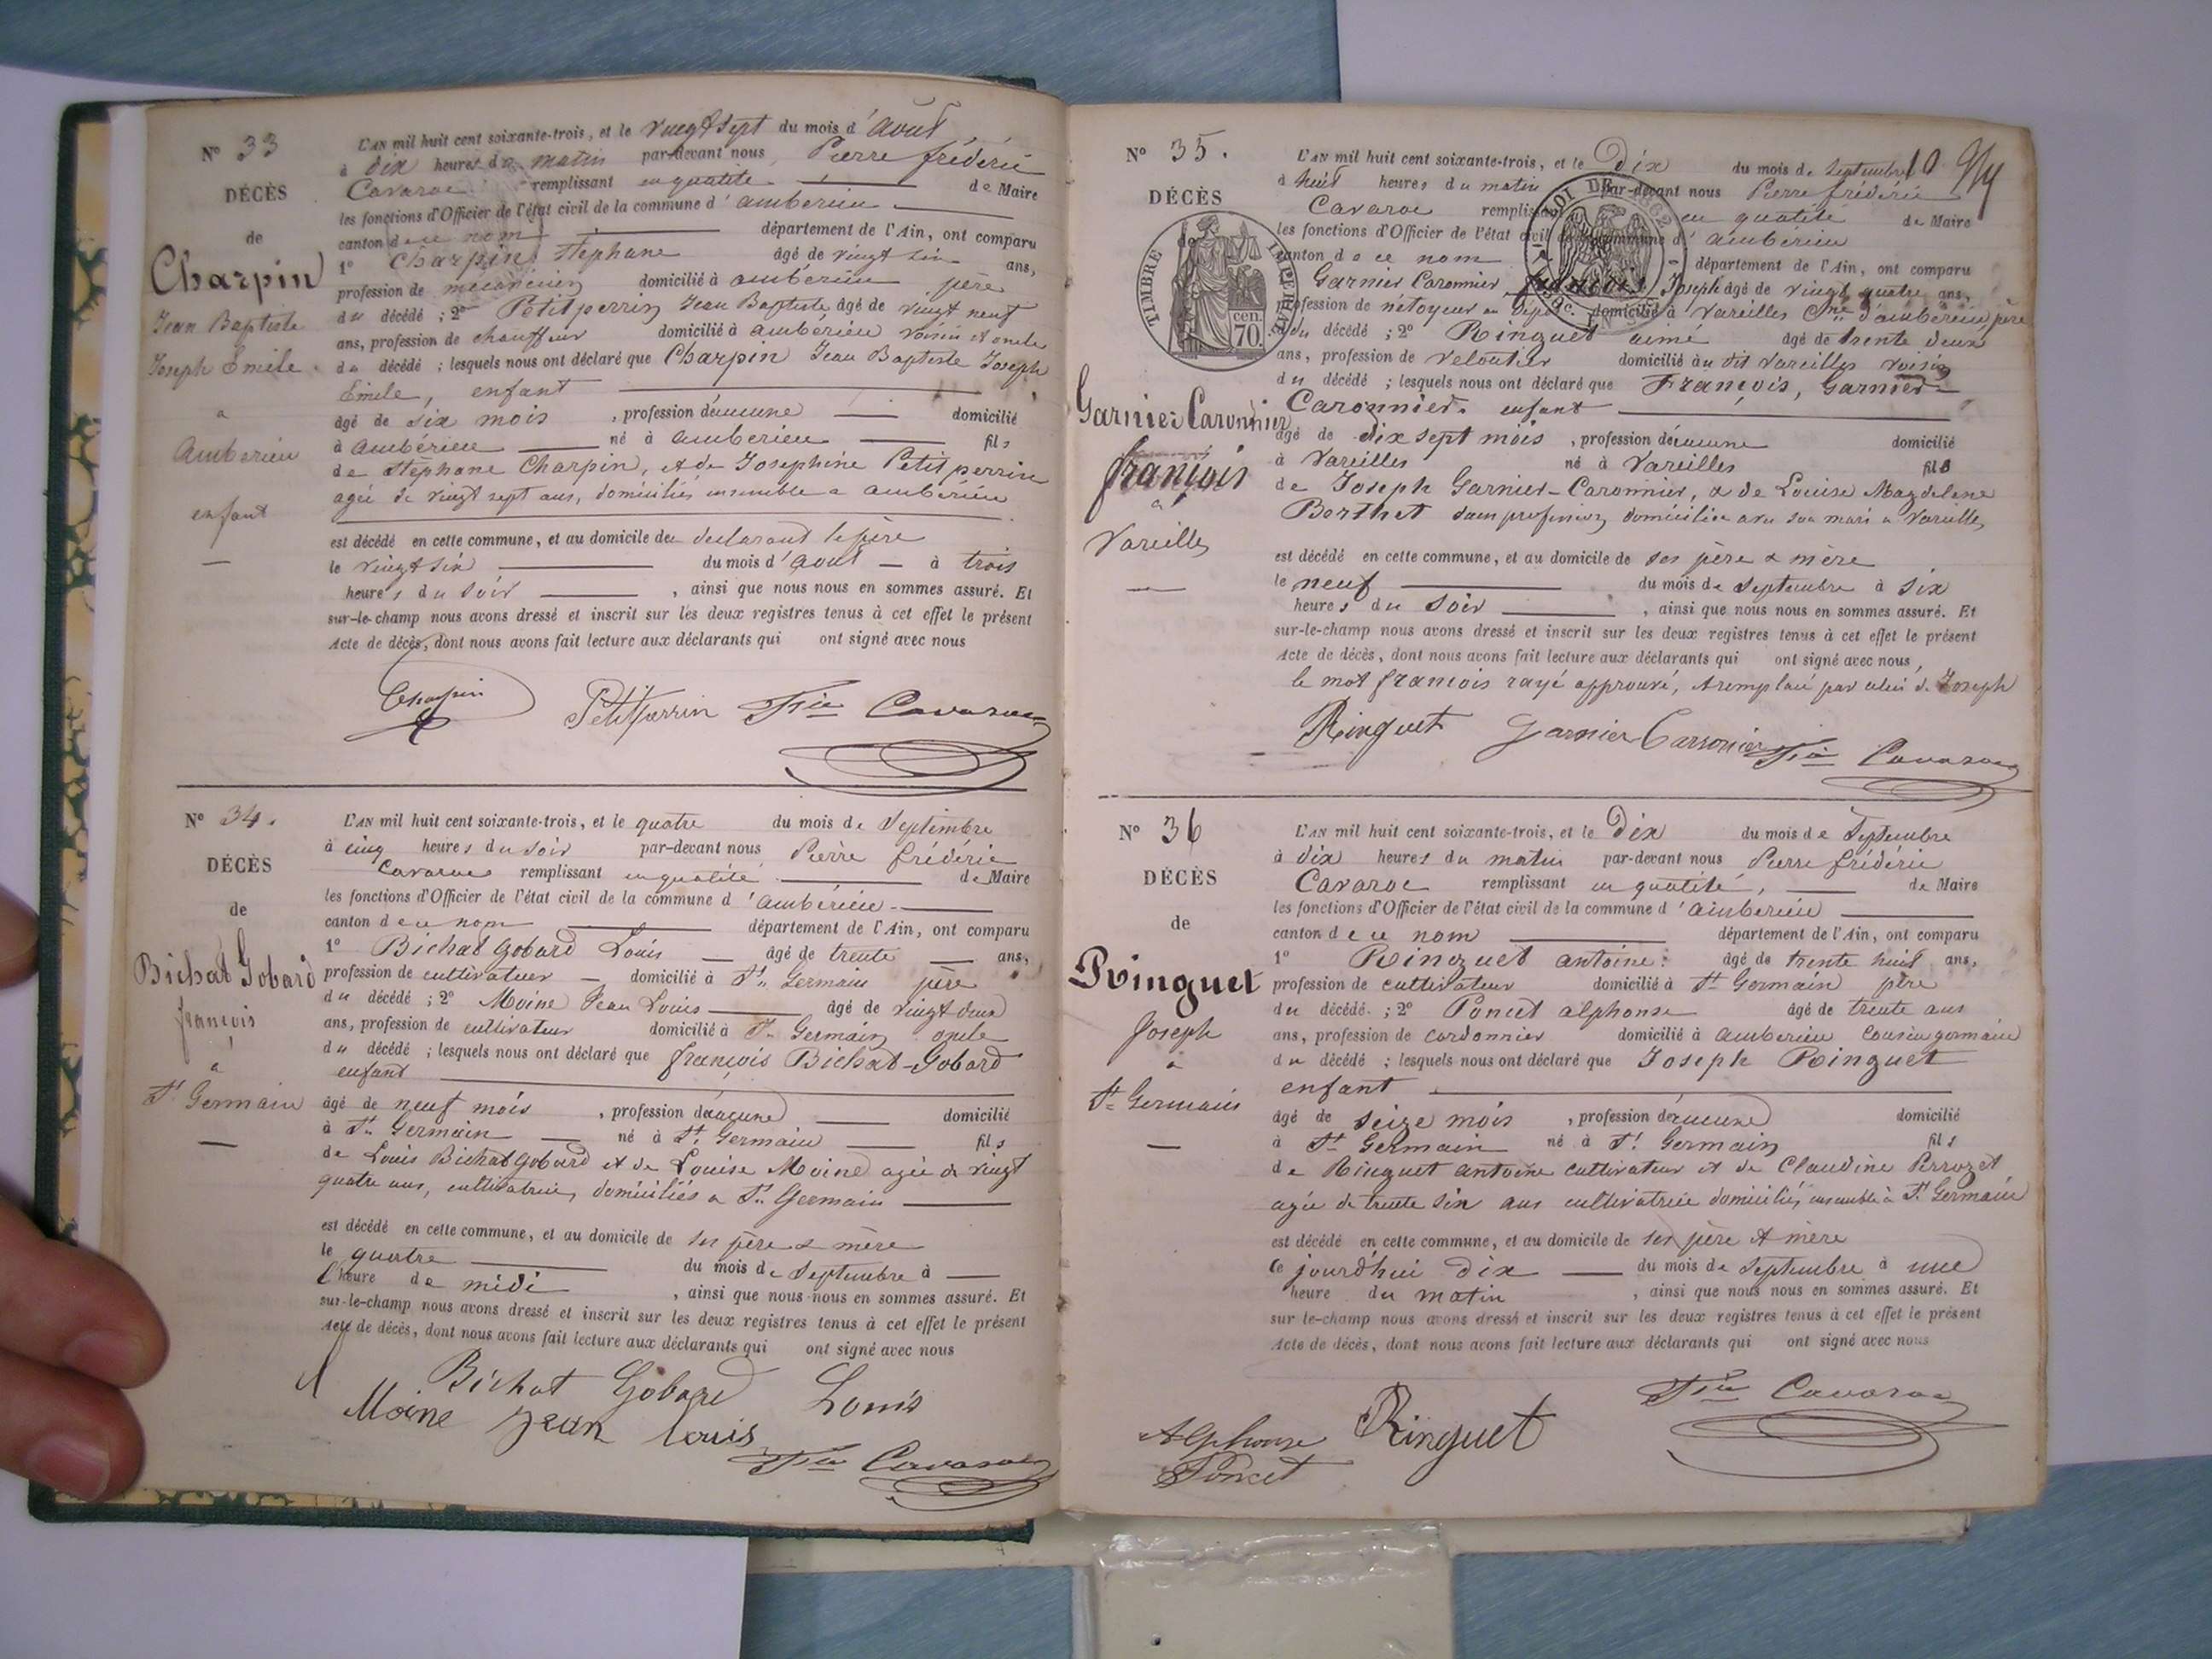 N° 33
DÉCÈS
de
Charpin
Jean Baptiste
Joseph Emile
a
Ambérieu
enfant
L'AN mil huit cent soixante-trois, et le vingt sept du mois d'août
à dix heures du matin par-devant nous Pierre frédéric
Cavaroc remplissant en qualité de Maire
les fonctions d'Officier de l'état civil de la commune d'ambérieu
canton de ce nom département de l'Ain, ont comparu
1° Charpin Stéphane âgé de vingt six ans,
profession de mécanicien domicilié à ambérieu père
du décédé ; 2° Petitperrin Jean Baptiste âgé de vingt neuf
ans, profession de chauffeur domicilié à ambérieu voisin et oncle
du décédé ; lesquels nous ont déclaré que Charpin Jean Baptiste Joseph
Emile, enfant
âgé de six mois , profession d'aucune domicilié
à ambérieu né à ambérieu fils
de Stéphane Charpin, et de Joséphine Petitperrin
agée de vingt sept ans, domiciliés ensemble a ambérieu
est décédé en cette commune, et au domicile du déclarant le père
le vingt six du mois d'août à trois
heures du soir , ainsi que nous nous en sommes assuré. Et
sur-le-champ nous avons dressé et inscrit sur les deux registres tenus à cet effet le présent
Acte de décès, dont nous avons fait lecture aux déclarants qui ont signé avec nous
Charpin Petitperrin Fric Cavaroc
N° 34.
DÉCÈS
de
Bichat Gobard
françois
à
St Germain
L'AN mil huit cent soixante-trois, et le quatre du mois de Septembre
à cinq heures du soir par-devant nous Pierre frédéric
Cavaroc remplissant en qualité de Maire
les fonctions d'Officier de l'état civil de la commune d'ambérieu
canton de ce nom département de l'Ain, ont comparu
1° Bichat Gobard Louis âgé de trente ans,
profession de cultivateur domicilié à St Germain père
du décédé ; 2° Moine Jean Louis âgé de vingt deux
ans, profession de cultivateur domicilié à St Germain oncle
du décédé ; lesquels nous ont déclaré que françois Bichat-Gobard
enfant
âgé de neuf mois , profession d'aucune domicilié
à St Germain né à St Germain fils
de Louis Bichat Gobard et de Louise Moine agée de vingt
quatre ans, cultivatrice, domiciliés a St Germain
est décédé en cette commune, et au domicile de ses père & mère
le quatre du mois de Septembre à
l'heure de midi , ainsi que nous nous en sommes assuré. Et
sur-le-champ nous avons dressé et inscrit sur les deux registres tenus à cet effet le présent
Acte de décès, dont nous avons fait lecture aux déclarants qui ont signé avec nous
Bichat Gobard Louis
Moine Jean louis
Fric Cavaroc
N° 35.
DÉCÈS
de
TIMBRE IMPÉRIAL
70 cen.
Garnier Caronnier
françois
a
Vareilles
L'AN mil huit cent soixante-trois, et le Dix du mois de Septembre 10
à huit heures du matin par-devant nous Pierre frédéric
Cavaroc remplissant en qualité de Maire
les fonctions d'Officier de l'état civil de la commune d'ambérieu
canton de ce nom département de l'Ain, ont comparu
Garnier Caronnier françois Joseph âgé de vingt quatre ans,
profession de nétoyeur au dépôt domicilié à Vareilles Cne d'ambérieu, père
du décédé ; 2° Ringuet aimé âgé de trente deux
ans, profession de veloutier domicilié au dit Vareilles voisin
du décédé ; lesquels nous ont déclaré que François, Garnier-
Caronnier. enfant
âgé de dix sept mois , profession d'aucune domicilié
à Vareilles né à Vareilles fils
de Joseph Garnier-Caronnier, & de Louise Magdelene
Berthet sans profession, domiciliée avec son mari a Vareilles,
est décédé en cette commune, et au domicile de ses père & mère
le neuf du mois de Septembre à six
heures du soir , ainsi que nous nous en sommes assuré. Et
sur-le-champ nous avons dressé et inscrit sur les deux registres tenus à cet effet le présent
Acte de décès, dont nous avons fait lecture aux déclarants qui ont signé avec nous,
le mot françois rayé approuvé, & remplacé par celui de Joseph
Ringuet Garnier Carronier Fric Cavaroc
N° 36
DÉCÈS
de
Ringuet
Joseph
a
St Germain
L'AN mil huit cent soixante-trois, et le Dix du mois de Septembre
à dix heures du matin par-devant nous Pierre frédéric
Cavaroc remplissant en qualité, de Maire
les fonctions d'Officier de l'état civil de la commune d'ambérieu
canton de ce nom département de l'Ain, ont comparu
1° Ringuet antoine. âgé de trente huit ans,
profession de cultivateur domicilié à St Germain père
du décédé. ; 2° Poncet alphonse âgé de trente ans
ans, profession de cordonnier domicilié à ambérieu Cousin germain
du décédé ; lesquels nous ont déclaré que Joseph Ringuet
enfant
âgé de seize mois , profession d'aucune domicilié
à St Germain né à St Germain fils
de Ringuet antoine cultivateur et de Claudine Perrozet
agée de trente six ans cultivatrice domiciliés ensemble à St Germain
est décédé en cette commune, et au domicile de ses père et mère
ce jourd'hui dix du mois de Septembre à une
heure du matin , ainsi que nous nous en sommes assuré. Et
sur-le-champ nous avons dressé et inscrit sur les deux registres tenus à cet effet le présent
Acte de décès, dont nous avons fait lecture aux déclarants qui ont signé avec nous
Fric Cavaroc
Alphonse Ringuet
Poncet